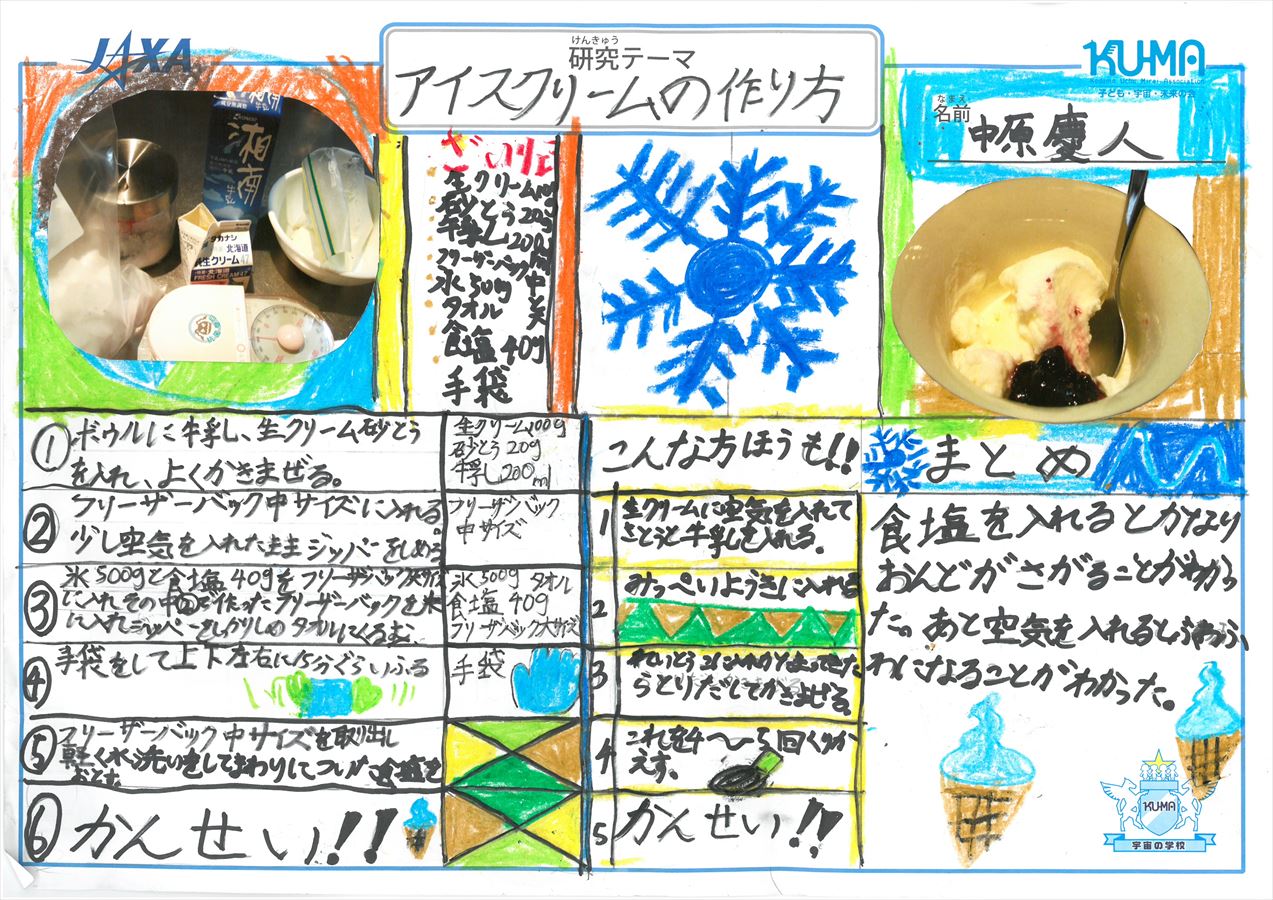 JAXA
けんきゅう
研究テーマ
アイスクリームの作り方
KU-MA
子ども・宇宙・未来の会
なまえ
名前
中原慶人
湘南
タカナシ
北海道
純生クリーム47
FRESH CREAM47
ざいりょう
生クリーム100g
砂とう20g
牛乳し200ml
フリーザーバック中大
氷500g
タオル
食塩40g
手袋
①ボウルに牛乳し、生クリーム砂とう
を入れ、よくかきまぜる。
生クリーム100g
砂とう20g
牛乳し200ml
②フリーザーバック中サイズに入れる。
少し空気を入れたままジッパーをしめる
フリーザーバック
中サイズ
③氷500gと食塩40gをフリーザーバック大サイズ
に入れその中に②で作ったフリーザーバックを氷
に入れジッパーをしっかりしめタオルにくるむ。
氷500g タオル
食塩40g
フリーザバック大サイズ
④手袋をして上下左右に15分ぐらいふる
手袋
⑤フリーザーバック中サイズを取り出し
軽く水洗いをしてまわりについた食塩を
おとす。
⑥かんせい!!
こんな方ほうも!!
1 生クリームに空気を入れて
さとうと牛乳しを入れる。
2 みっぺいようきに入れる
3 れいとうこに入れかたまってきた
らとりだしてかきまぜる。
4 これを4〜5回くりか
えす。
5 かんせい!!
まとめ
食塩を入れるとかなり
おんどがさがることがわかっ
た。あと空気を入れるとふわふ
わになることがわかった。
KU-MA
宇宙の学校